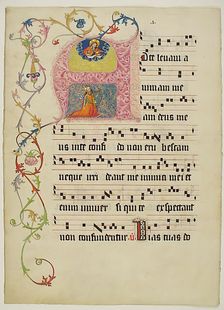 Ad te leuaui a
nimam me
am deus me
us in te confi do non eru bescam
neque irri deant me inimici mei et
enim uniuer si qui te expectant
non confundentur. v Uias tuas do